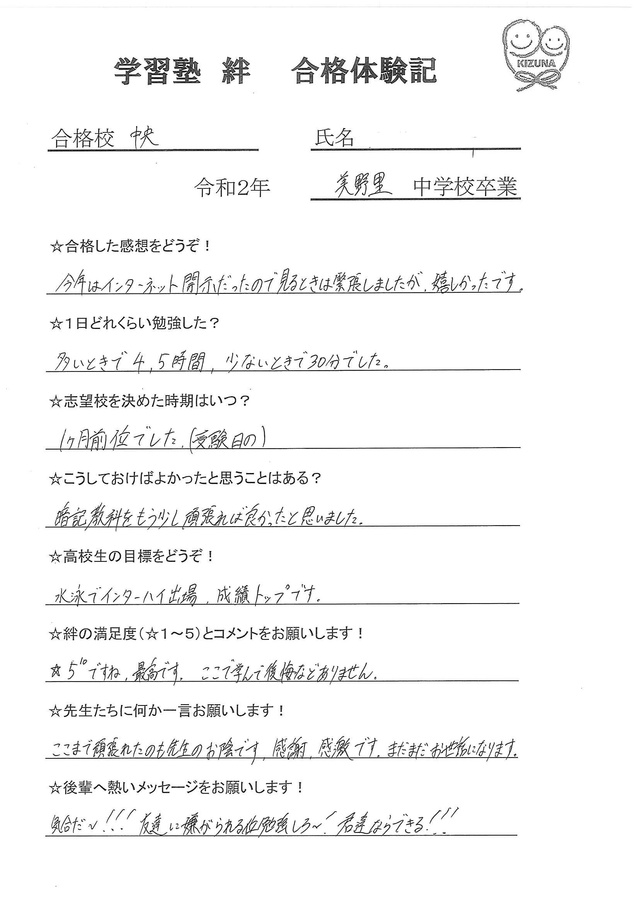 学習塾 絆 合格体験記
KIZUNA
合格校 中央 氏名
令和2年 美野里 中学校卒業
☆合格した感想をどうぞ！
今年はインターネット開示だったので見るときは緊張しましたが、嬉しかったです。
☆1日どれくらい勉強した？
多いときで4,5時間,少ないときで30分でした。
☆志望校を決めた時期はいつ？
1ヶ月前位でした。(受験日の)
☆こうしておけばよかったと思うことはある？
暗記教科をもう少し頑張れば良かったと思いました。
☆高校生の目標をどうぞ！
水泳でインターハイ出場、成績トップです。
☆絆の満足度(☆1～5)とコメントをお願いします！
☆5"ですね,最高です。ここで学んで後悔などありません。
☆先生たちに何か一言お願いします！
ここまで頑張れたのも先生のお陰です,感謝,感激です。まだまだお世話になります。
☆後輩へ熱いメッセージをお願いします！
気合だ～!!!友達に嫌がられる位勉強しろ～!君達ならできる!!!